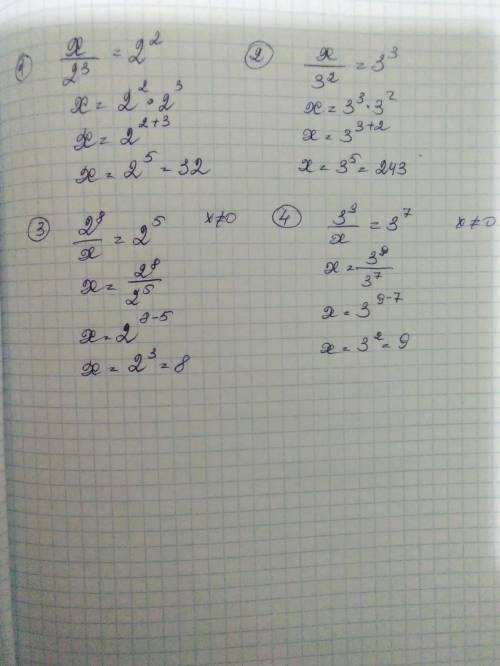 1 x/2³ = 2²
x = 2² · 2³
x = 2²⁺³
x = 2⁵ = 32
2 x/3² = 3³
x = 3³ · 3²
x = 3³⁺²
x = 3⁵ = 243
3 2⁸/x = 2⁵ x ≠ 0
x = 2⁸/2⁵
x = 2⁸⁻⁵
x = 2³ = 8
4 3⁹/x = 3⁷ x ≠ 0
x = 3⁹/3⁷
x = 3⁹⁻⁷
x = 3² = 9